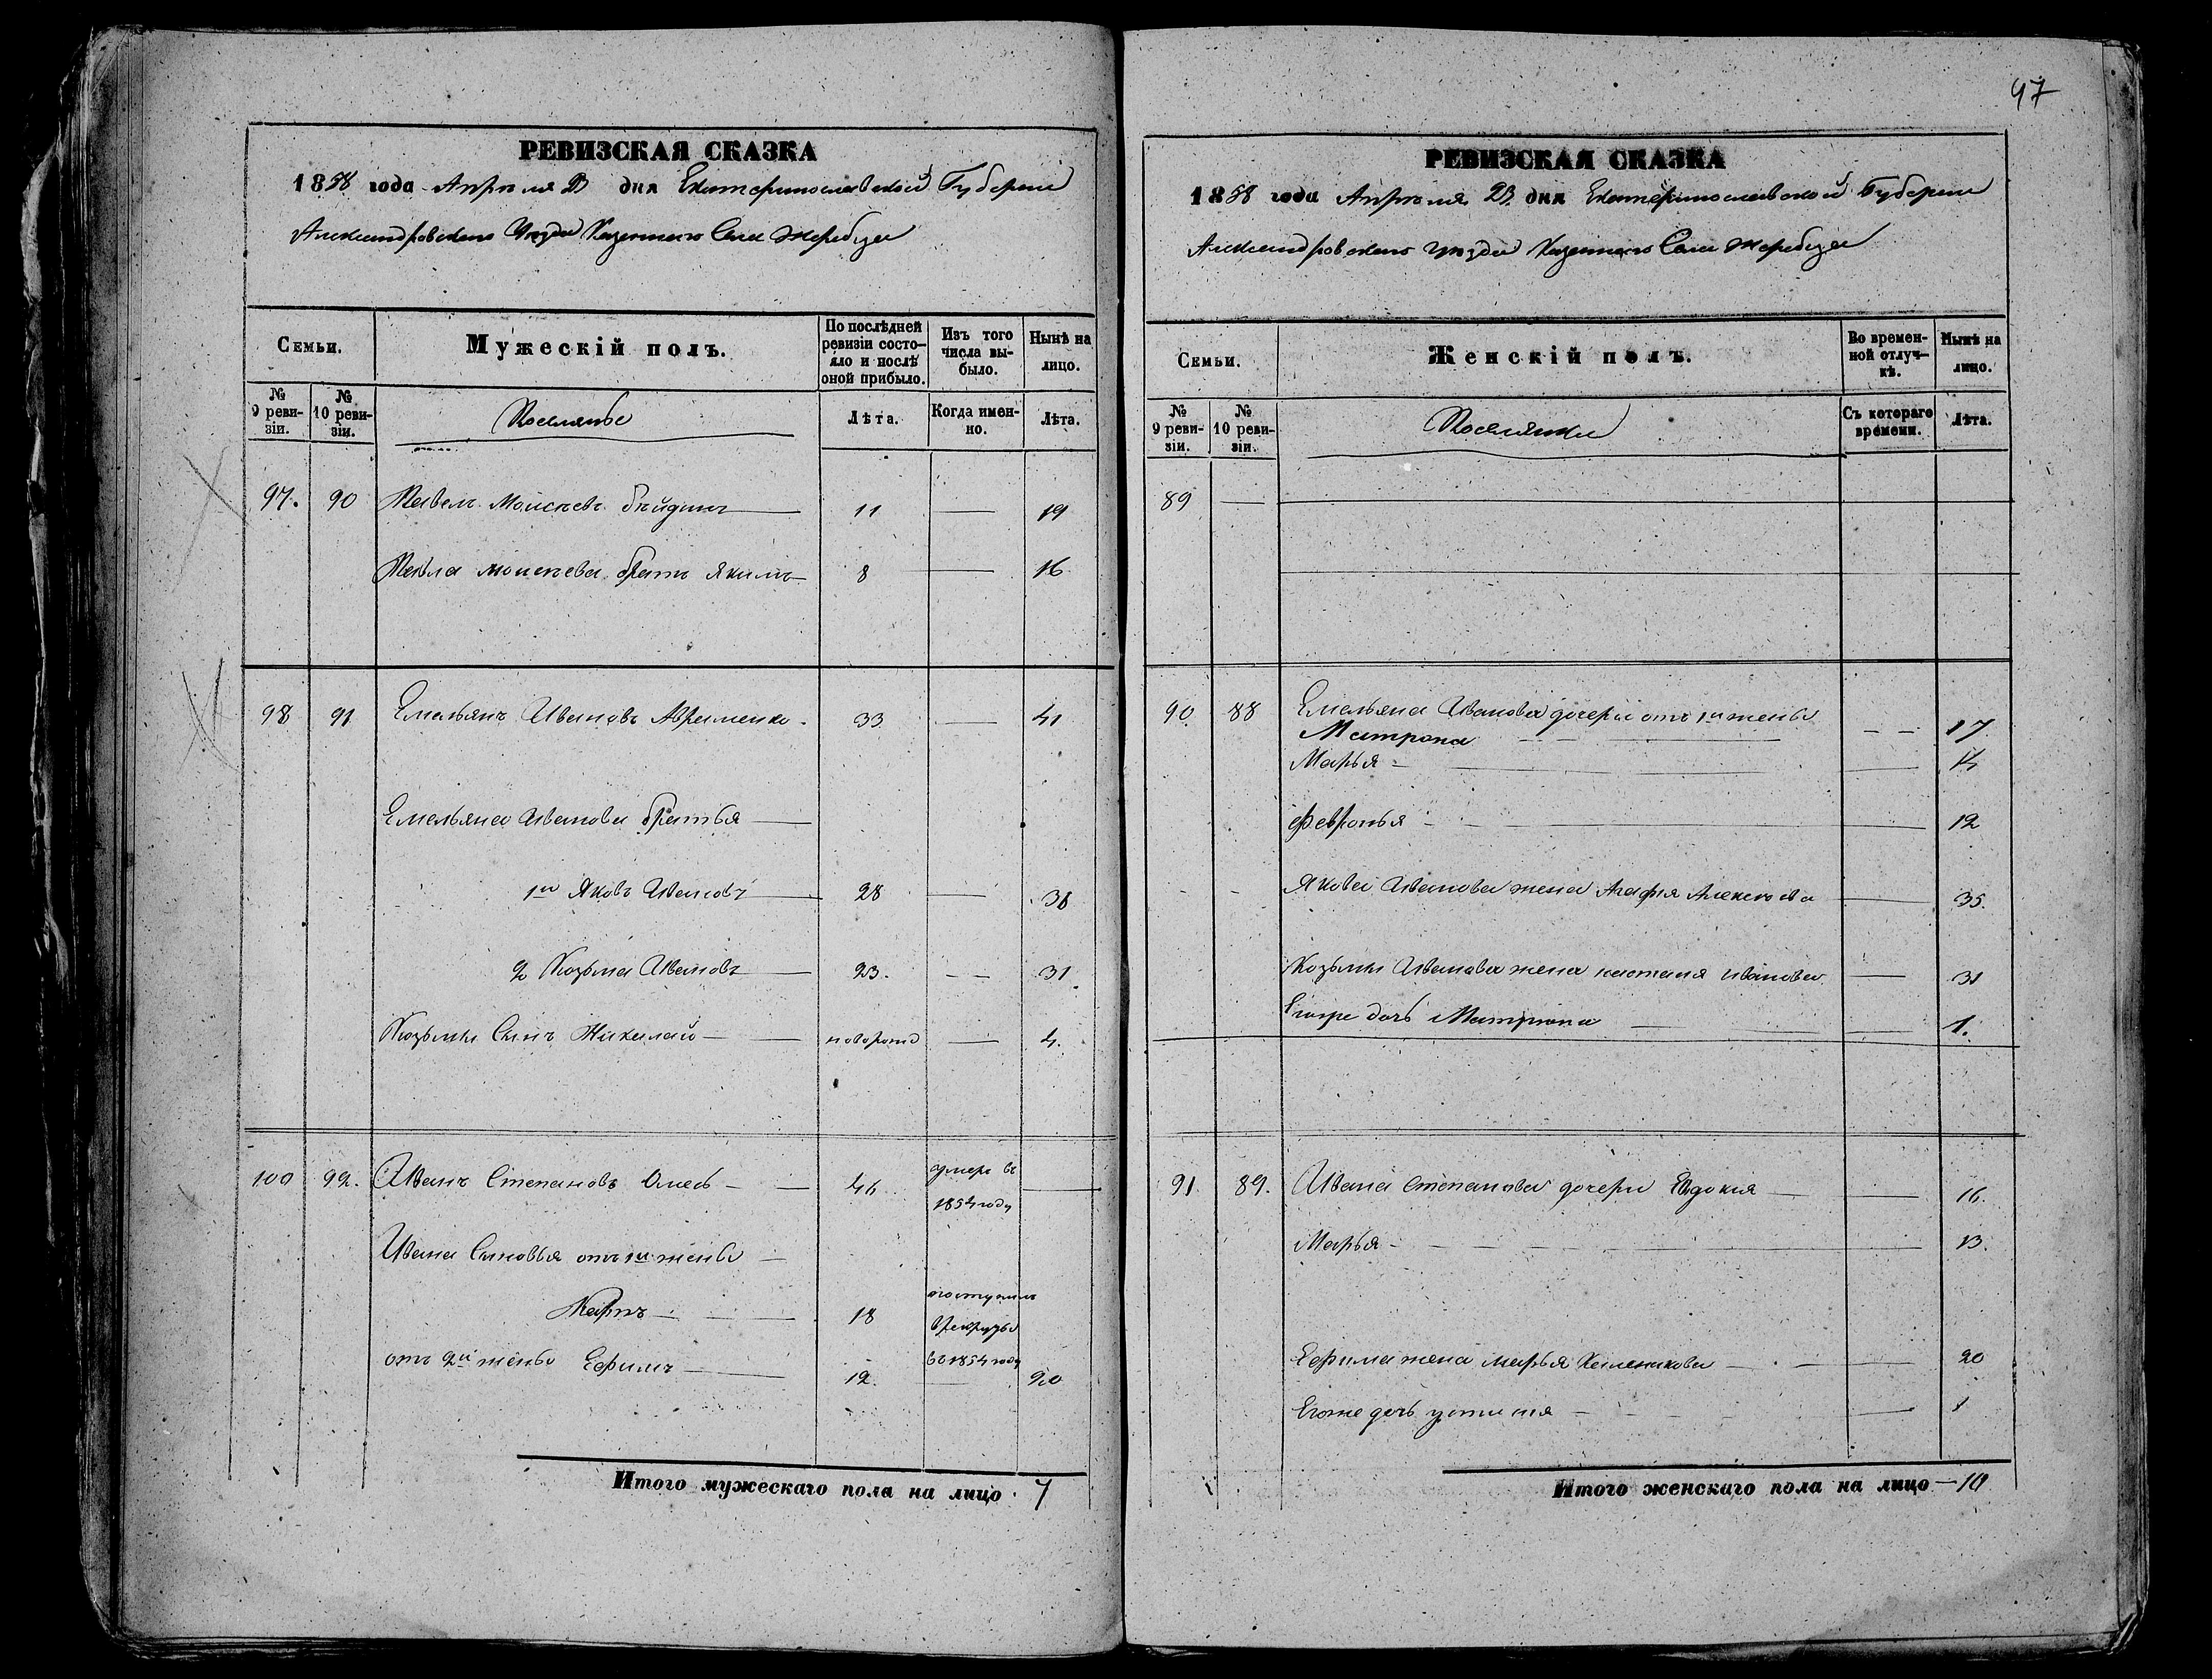 97
РЕВИЗСКАЯ СКАЗКА
1858 года Апрѣля 23 дня Екатеринославской Губерніи
Александровскаго Уѣзда Казеннаго Села Жеребца
Семьи.
Мужескій полъ.
По послѣдней ревизіи состо-
яло и послѣ
оной прибыло.
Изъ того
числа вы-
было.
Нынѣ на
лицо.
№
9 реви-
зіи.
№
10 реви-
зіи.
Поселяне
Лѣта.
Когда имен-
но.
Лѣта.
97. 90 Павелъ Моисѣевъ 11 — 19
Павла Моисѣева братъ Якимъ — 8 — 16
98 91 Емельянъ Ивановъ Авраменко. 33 — 41
Емельяна Иванова братья —
1й Яковъ Ивановъ — 28 — 38
2 Козьма Ивановъ — 23. — 31.
Козьмы Сынъ Николай — новорожд — 4.
100 92. Иванъ Степановъ — 46. умеръ въ
1854 году —
Ивана Сыновья отъ 1й жены —
Карпъ — 18 поступилъ
въ рекруты
въ 1854 году
отъ 2й жены Ефимъ — 12. — 20
Итого мужескаго пола на лицо 7
РЕВИЗСКАЯ СКАЗКА
1858 года Апрѣля 23 дня Екатеринославской Губерніи
Александровскаго Уѣзда Казеннаго Села Жеребца
Семьи.
Женскій полъ.
Во времен-
ной отлуч-
кѣ.
Нынѣ на
лицо.
№
9 реви-
зіи.
№
10 реви-
зіи.
Поселянки
Съ котораго
времени.
Лѣта.
89 —
90. 88 Емельяна Иванова дочери отъ 1й жены
Матрона — — 17
Марья — — 14
Февронья — — 12
Якова Иванова жена Агафія Алексѣева — 35.
Козьмы Иванова жена Настасія Иванова — 31
Егоже дочь Матрона — — 1.
91. 89. Ивана Степанова дочери Евдокія — — 16.
Марья — — 13.
Ефима жена Марья — — 20
Егоже дочь Устинія — — 1
Итого женскаго пола на лицо — 10